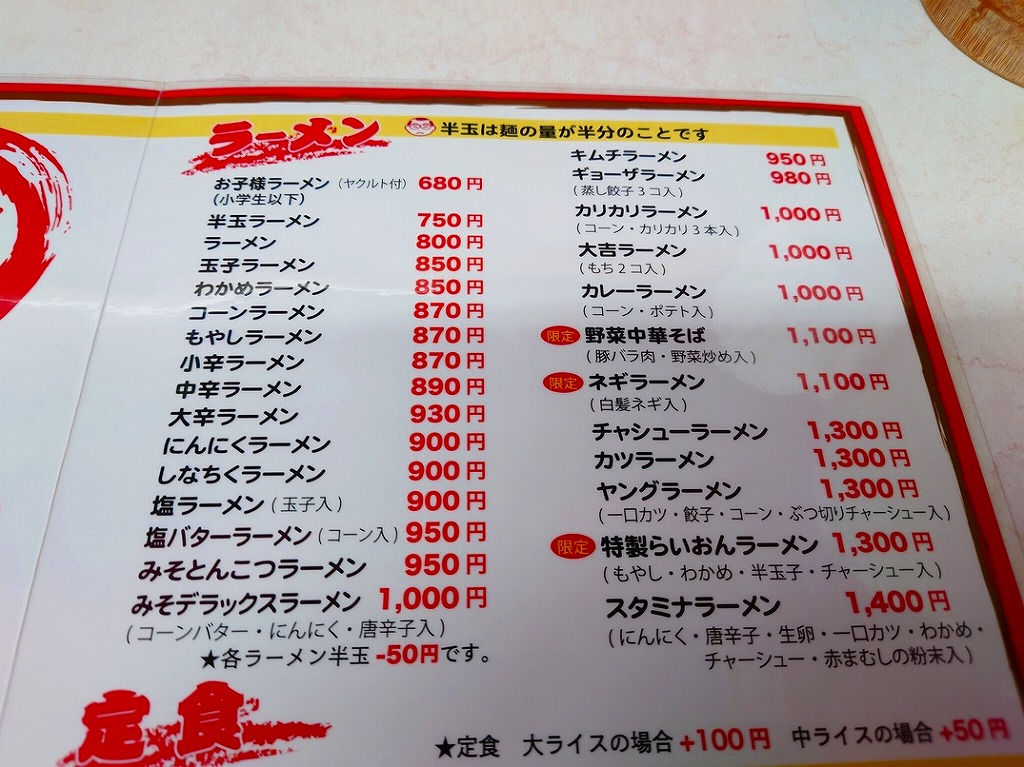 ラーメン
半玉は麺の量が半分のことです
お子様ラーメン（ヤクルト付） 680円
(小学生以下)
半玉ラーメン 750円
ラーメン 800円
玉子ラーメン 850円
わかめラーメン 850円
コーンラーメン 870円
もやしラーメン 870円
小辛ラーメン 870円
中辛ラーメン 890円
大辛ラーメン 930円
にんにくラーメン 900円
しなちくラーメン 900円
塩ラーメン（玉子入） 900円
塩バターラーメン（コーン入） 950円
みそとんこつラーメン 950円
みそデラックスラーメン 1,000円
（コーンバター・にんにく・唐辛子入）
★各ラーメン半玉 -50円です。
キムチラーメン 950円
ギョーザラーメン 980円
（蒸し餃子3コ入）
カリカリラーメン 1,000円
（コーン・カリカリ3本入）
大吉ラーメン 1,000円
（もち2コ入）
カレーラーメン 1,000円
（コーン・ポテト入）
限定 野菜中華そば 1,100円
（豚バラ肉・野菜炒め入）
限定 ネギラーメン 1,100円
（白髪ネギ入）
チャシューラーメン 1,300円
カツラーメン 1,300円
ヤングラーメン 1,300円
（一口カツ・餃子・コーン・ぶつ切りチャーシュー入）
限定 特製らいおんラーメン 1,300円
（もやし・わかめ・半玉子・チャーシュー入）
スタミナラーメン 1,400円
（にんにく・唐辛子・生卵・一口カツ・わかめ・
チャーシュー・赤まむしの粉末入）
定食
★定食 大ライスの場合+100円 中ライスの場合+50円